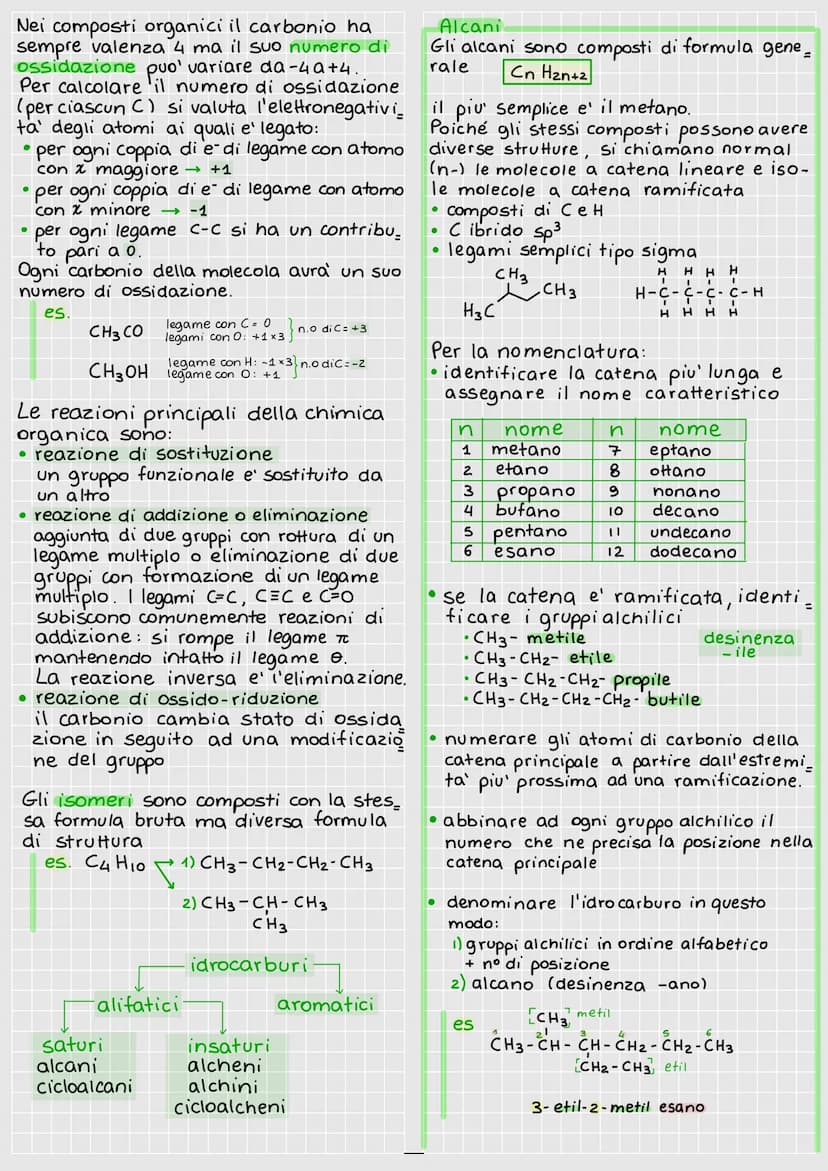 Nei composti organici il carbonio ha
sempre valenza 4 ma il suo numero di
ossidazione puo' variare da -4 a +4.
Per calcolare il numero di ossidazione
(per ciascun C) si valuta l'elettronegativi=
ta' degli atomi ai quali e' legato:
• per ogni coppia di e⁻ di legame con atomo
con χ maggiore → +1
• per ogni coppia di e⁻ di legame con atomo
con χ minore → -1
• per ogni legame C-C si ha un contribu=
to pari a 0.
Ogni carbonio della molecola avra' un suo
numero di ossidazione.
es.
CH3CO legame con C = 0
legami con O: +1 ×3 } n.o di C= +3
CH3OH legame con H: -1×3 } n.o di C= -2
legame con O: +1
Le reazioni principali della chimica
organica sono:
• reazione di sostituzione
un gruppo funzionale e' sostituito da
un altro
• reazione di addizione o eliminazione
aggiunta di due gruppi con rottura di un
legame multiplo o eliminazione di due
gruppi con formazione di un legame
multiplo. I legami C=C, C≡C e C=O
subiscono comunemente reazioni di
addizione: si rompe il legame π
mantenendo intatto il legame θ.
La reazione inversa e' l'eliminazione.
• reazione di ossido-riduzione
il carbonio cambia stato di ossida=
zione in seguito ad una modificazio=
ne del gruppo
Gli isomeri sono composti con la stes=
sa formula bruta ma diversa formula
di struttura
es. C4H10 → 1) CH3-CH2-CH2-CH3
2) CH3-CH-CH3
CH3
idrocarburi
alifatici aromatici
saturi insaturi
alcani alcheni
cicloalcani alchini
cicloalcheni
Alcani
Gli alcani sono composti di formula gene=
rale CnH2n+2
il piu' semplice e' il metano.
Poiché gli stessi composti possono avere
diverse strutture, si chiamano normal
(n-) le molecole a catena lineare e iso-
le molecole a catena ramificata
• composti di C e H
• C ibrido sp³
• legami semplici tipo sigma
CH3 H H H H
CH3 H-C-C-C-C-H
H3C H H H H
Per la nomenclatura:
• identificare la catena piu' lunga e
assegnare il nome caratteristico
n nome n nome
1 metano 7 eptano
2 etano 8 ottano
3 propano 9 nonano
4 bufano 10 decano
5 pentano 11 undecano
6 esano 12 dodecano
• se la catena e' ramificata, identi=
ficare i gruppi alchilici
• CH3- metile desinenza
• CH3-CH2- etile -ile
• CH3-CH2-CH2- propile
• CH3-CH2-CH2-CH2- butile
• numerare gli atomi di carbonio della
catena principale a partire dall'estremi=
ta' piu' prossima ad una ramificazione.
• abbinare ad ogni gruppo alchilico il
numero che ne precisa la posizione nella
catena principale
• denominare l'idrocarburo in questo
modo:
1) gruppi alchilici in ordine alfabetico
+ n° di posizione
2) alcano (desinenza -ano)
es [CH3] metil
1 2 3 4 5 6
CH3-CH-CH-CH2-CH2-CH3
[CH2-CH3] etil
3-etil-2-metil esano